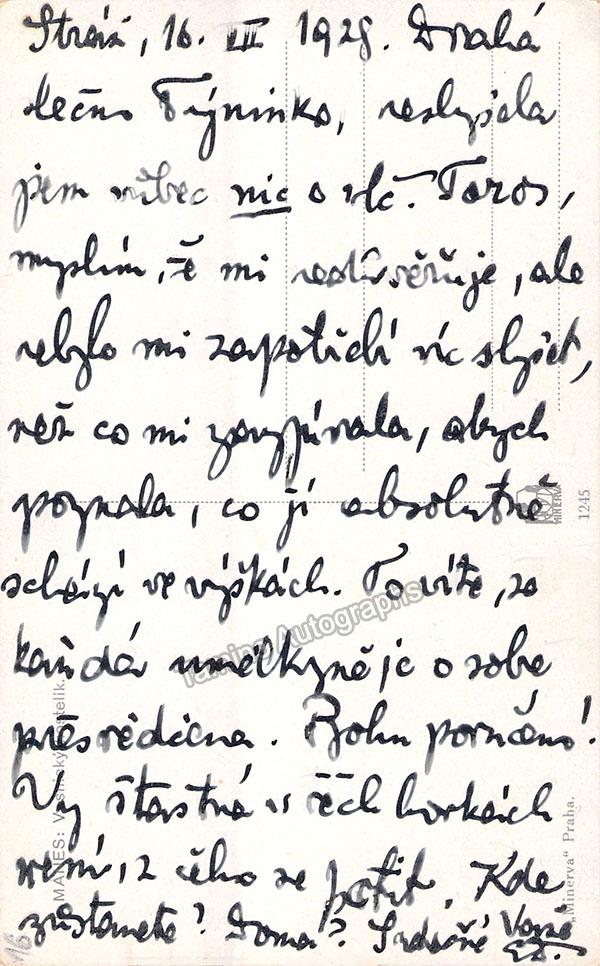 Stráž, 16. III 1928. Drahá
slečno Týninko, neslyšela
jsem vůbec nic o slč. Toros,
myslím, že mi nedůvěřuje, ale
nebylo mi zapotřebí víc slyšet,
než co mi zazpívala, abych
poznala, co jí absolutně
schází ve výškách. To víte, že
každá umělkyně je o sobě
přesvědčena. Bohu poručeno!
Vy šťastná v těch horkách
nemí, z čeho se potit. Kde
zůstanete? Doma? Srdečně Vaše
ED.
MINERVA
1245
"Minerva" Praha.
MÁNES:
Taming Autographs
16